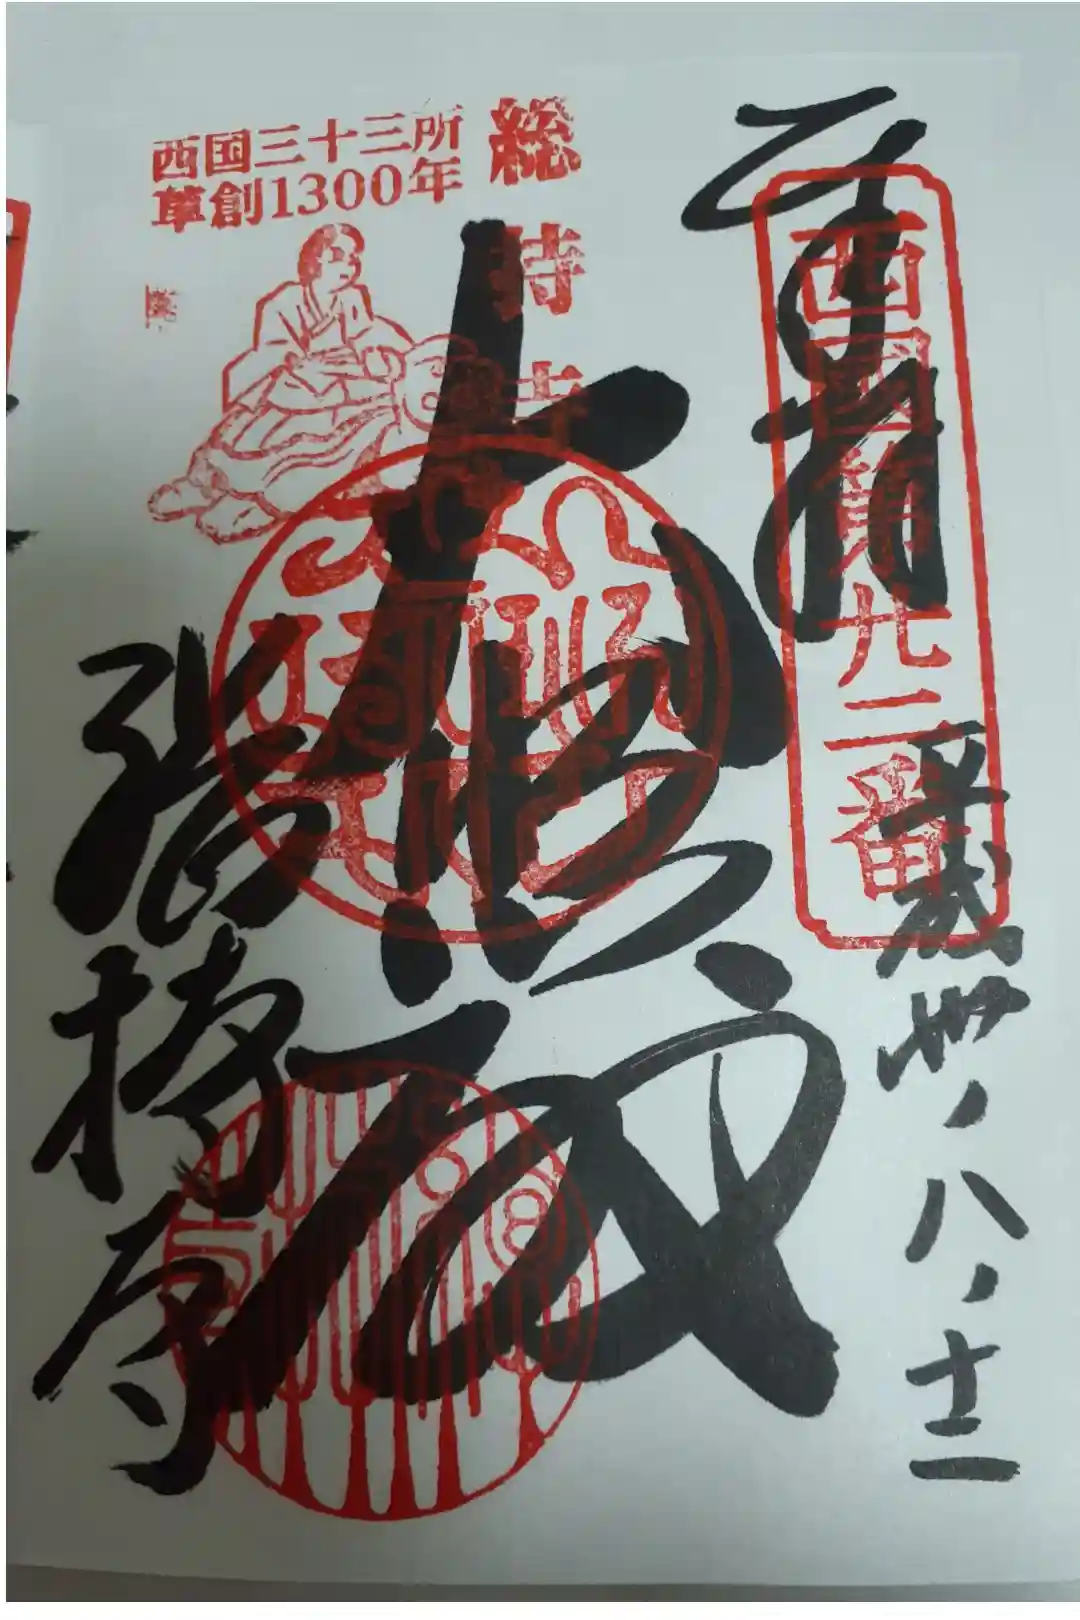 奉拝
西国第廿二番
平成卅・八・十二
大悲殿
総持寺
西国三十三所
草創1300年
総持寺